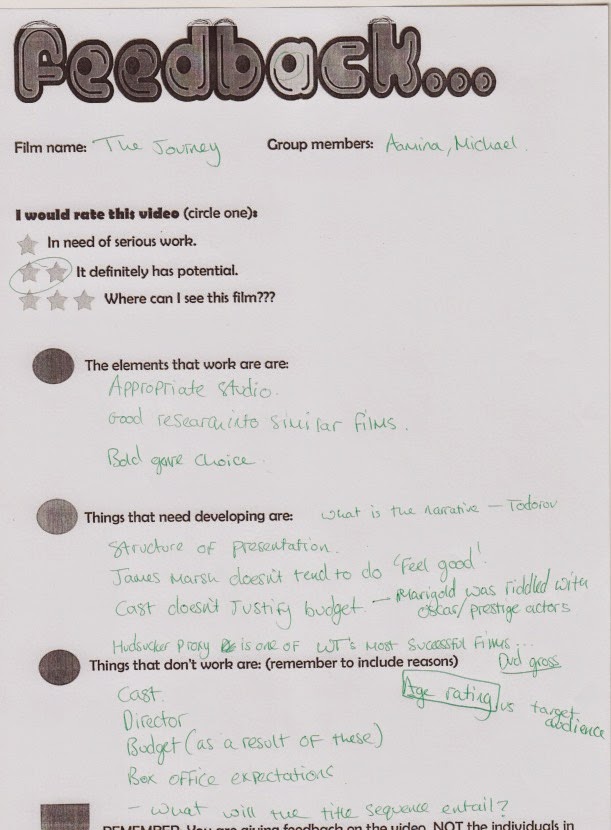 Feedback...
Film name: The Journey Group members: Aamina, Michael.
I would rate this video (circle one):
In need of serious work.
It definitely has potential.
Where can I see this film???
The elements that work are are:
Appropriate studio.
Good research into similar films.
Bold genre choice.
Things that need developing are: What is the narrative – Todorov
Structure of presentation.
James Marsh doesn't tend to do 'Feel good'.
Cast doesn't Justify budget. – Marigold was riddled with
oscar/prestige actors
Hudsucker Proxy is one of WT's most successful films...
Things that don't work are: (remember to include reasons) Dvd gross
Cast.
Age rating vs target
audience
Director
Budget (as a result of these)
Box office expectations
– What will the title sequence entail?
REMEMBER: You are giving feedback on the video, NOT the individuals in